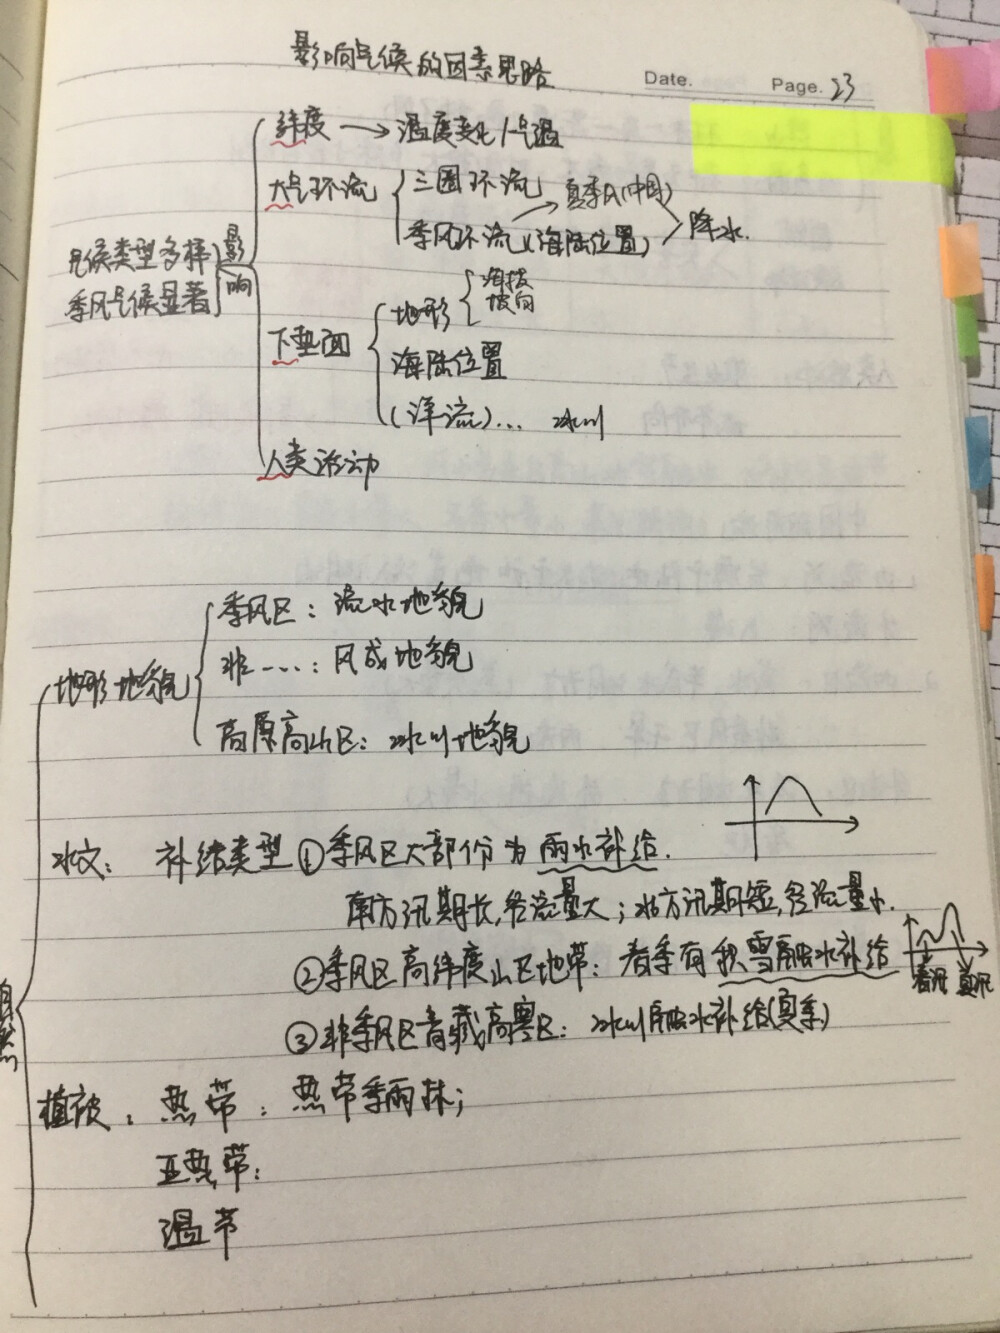 影响气候的因素思路
Date. Page. 23
纬度 → 温度变化/气温
大气环流 三圈环流
季风环流(海陆位置) 夏季风(中国) 降水.
气候类型多样
季风气候显著
影响
下垫面
地形 海拔
坡向
海陆位置
(洋流)... 冰川
人类活动
地形地貌
季风区: 流水地貌
非----: 风成地貌
高原高山区: 冰川地貌
水文: 补给类型 ①季风区大部份为雨水补给.
南方汛期长,径流量大;北方汛期短,径流量小.
②季风区高纬度山区地带: 春季有积雪融水补给
春汛 夏汛
③非季风区青藏高寒区: 冰川融水补给(夏季)
自然
植被: 热带: 热带季雨林;
亚热带:
温带